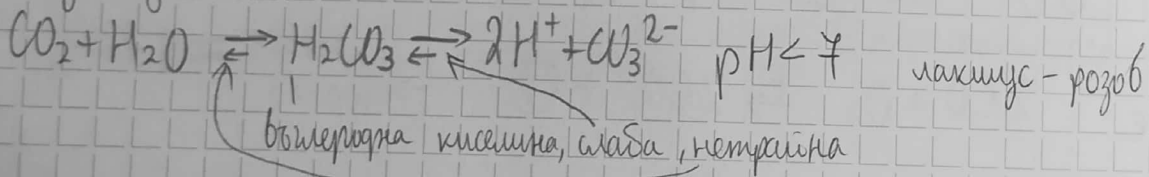 CO₂ + H₂O ⇄ H₂CO₃ ⇄ 2H⁺ + CO₃²⁻ pH < 7 лакмус - розов
въглеродна киселина, слаба, нетрайна